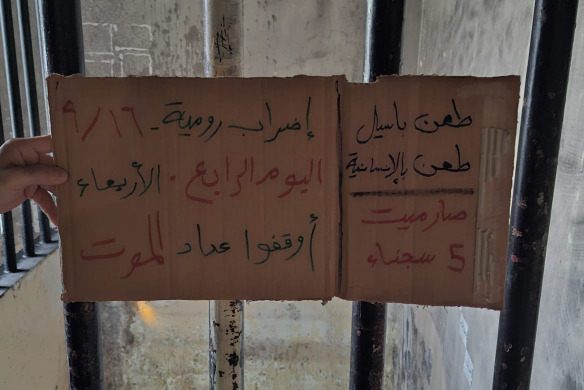 طعن باسيل
طعن بالإنسانية
صار ميت
5 سجناء
إضراب رومية - ٩/١٦
اليوم الرابع - الأربعاء
أوقفوا عداد الموت